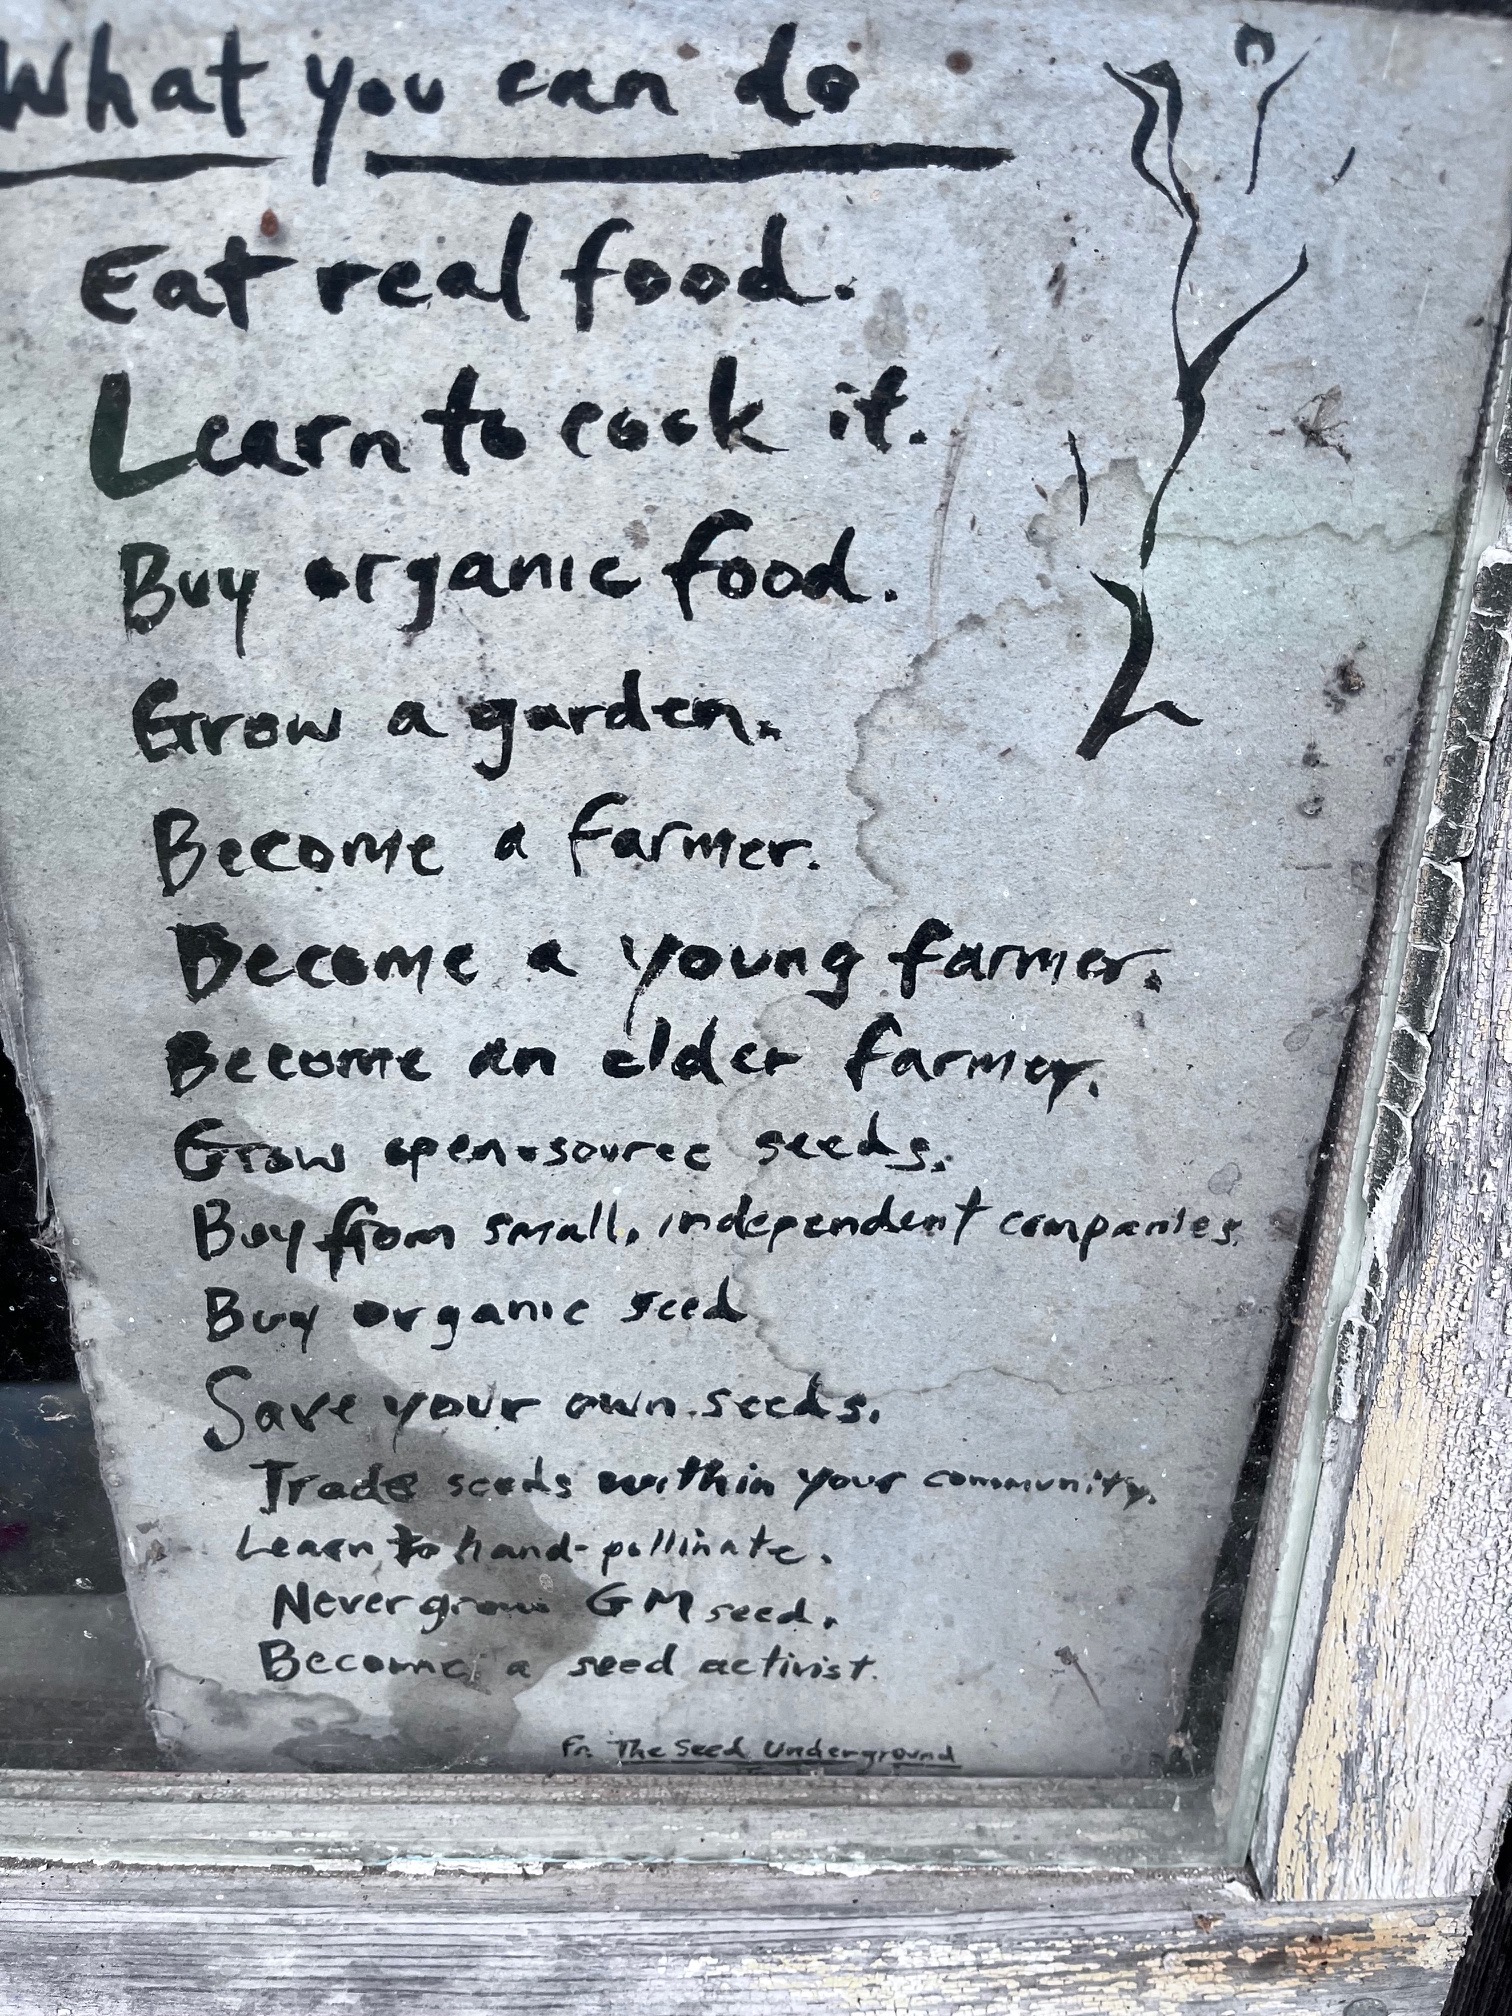 What you can do
Eat real food.
Learn to cook it.
Buy organic food.
Grow a garden.
Become a farmer.
Become a young farmer.
Become an elder farmer.
Grow open-source seeds.
Buy from small, independent companies.
Buy organic seed
Save your own seeds.
Trade seeds within your community.
Learn to hand-pollinate.
Never grow GM seed.
Become a seed activist.
Fr. The Seed Underground